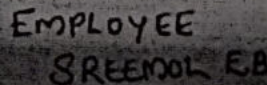 EMPLOYEE
SREEMOL EB